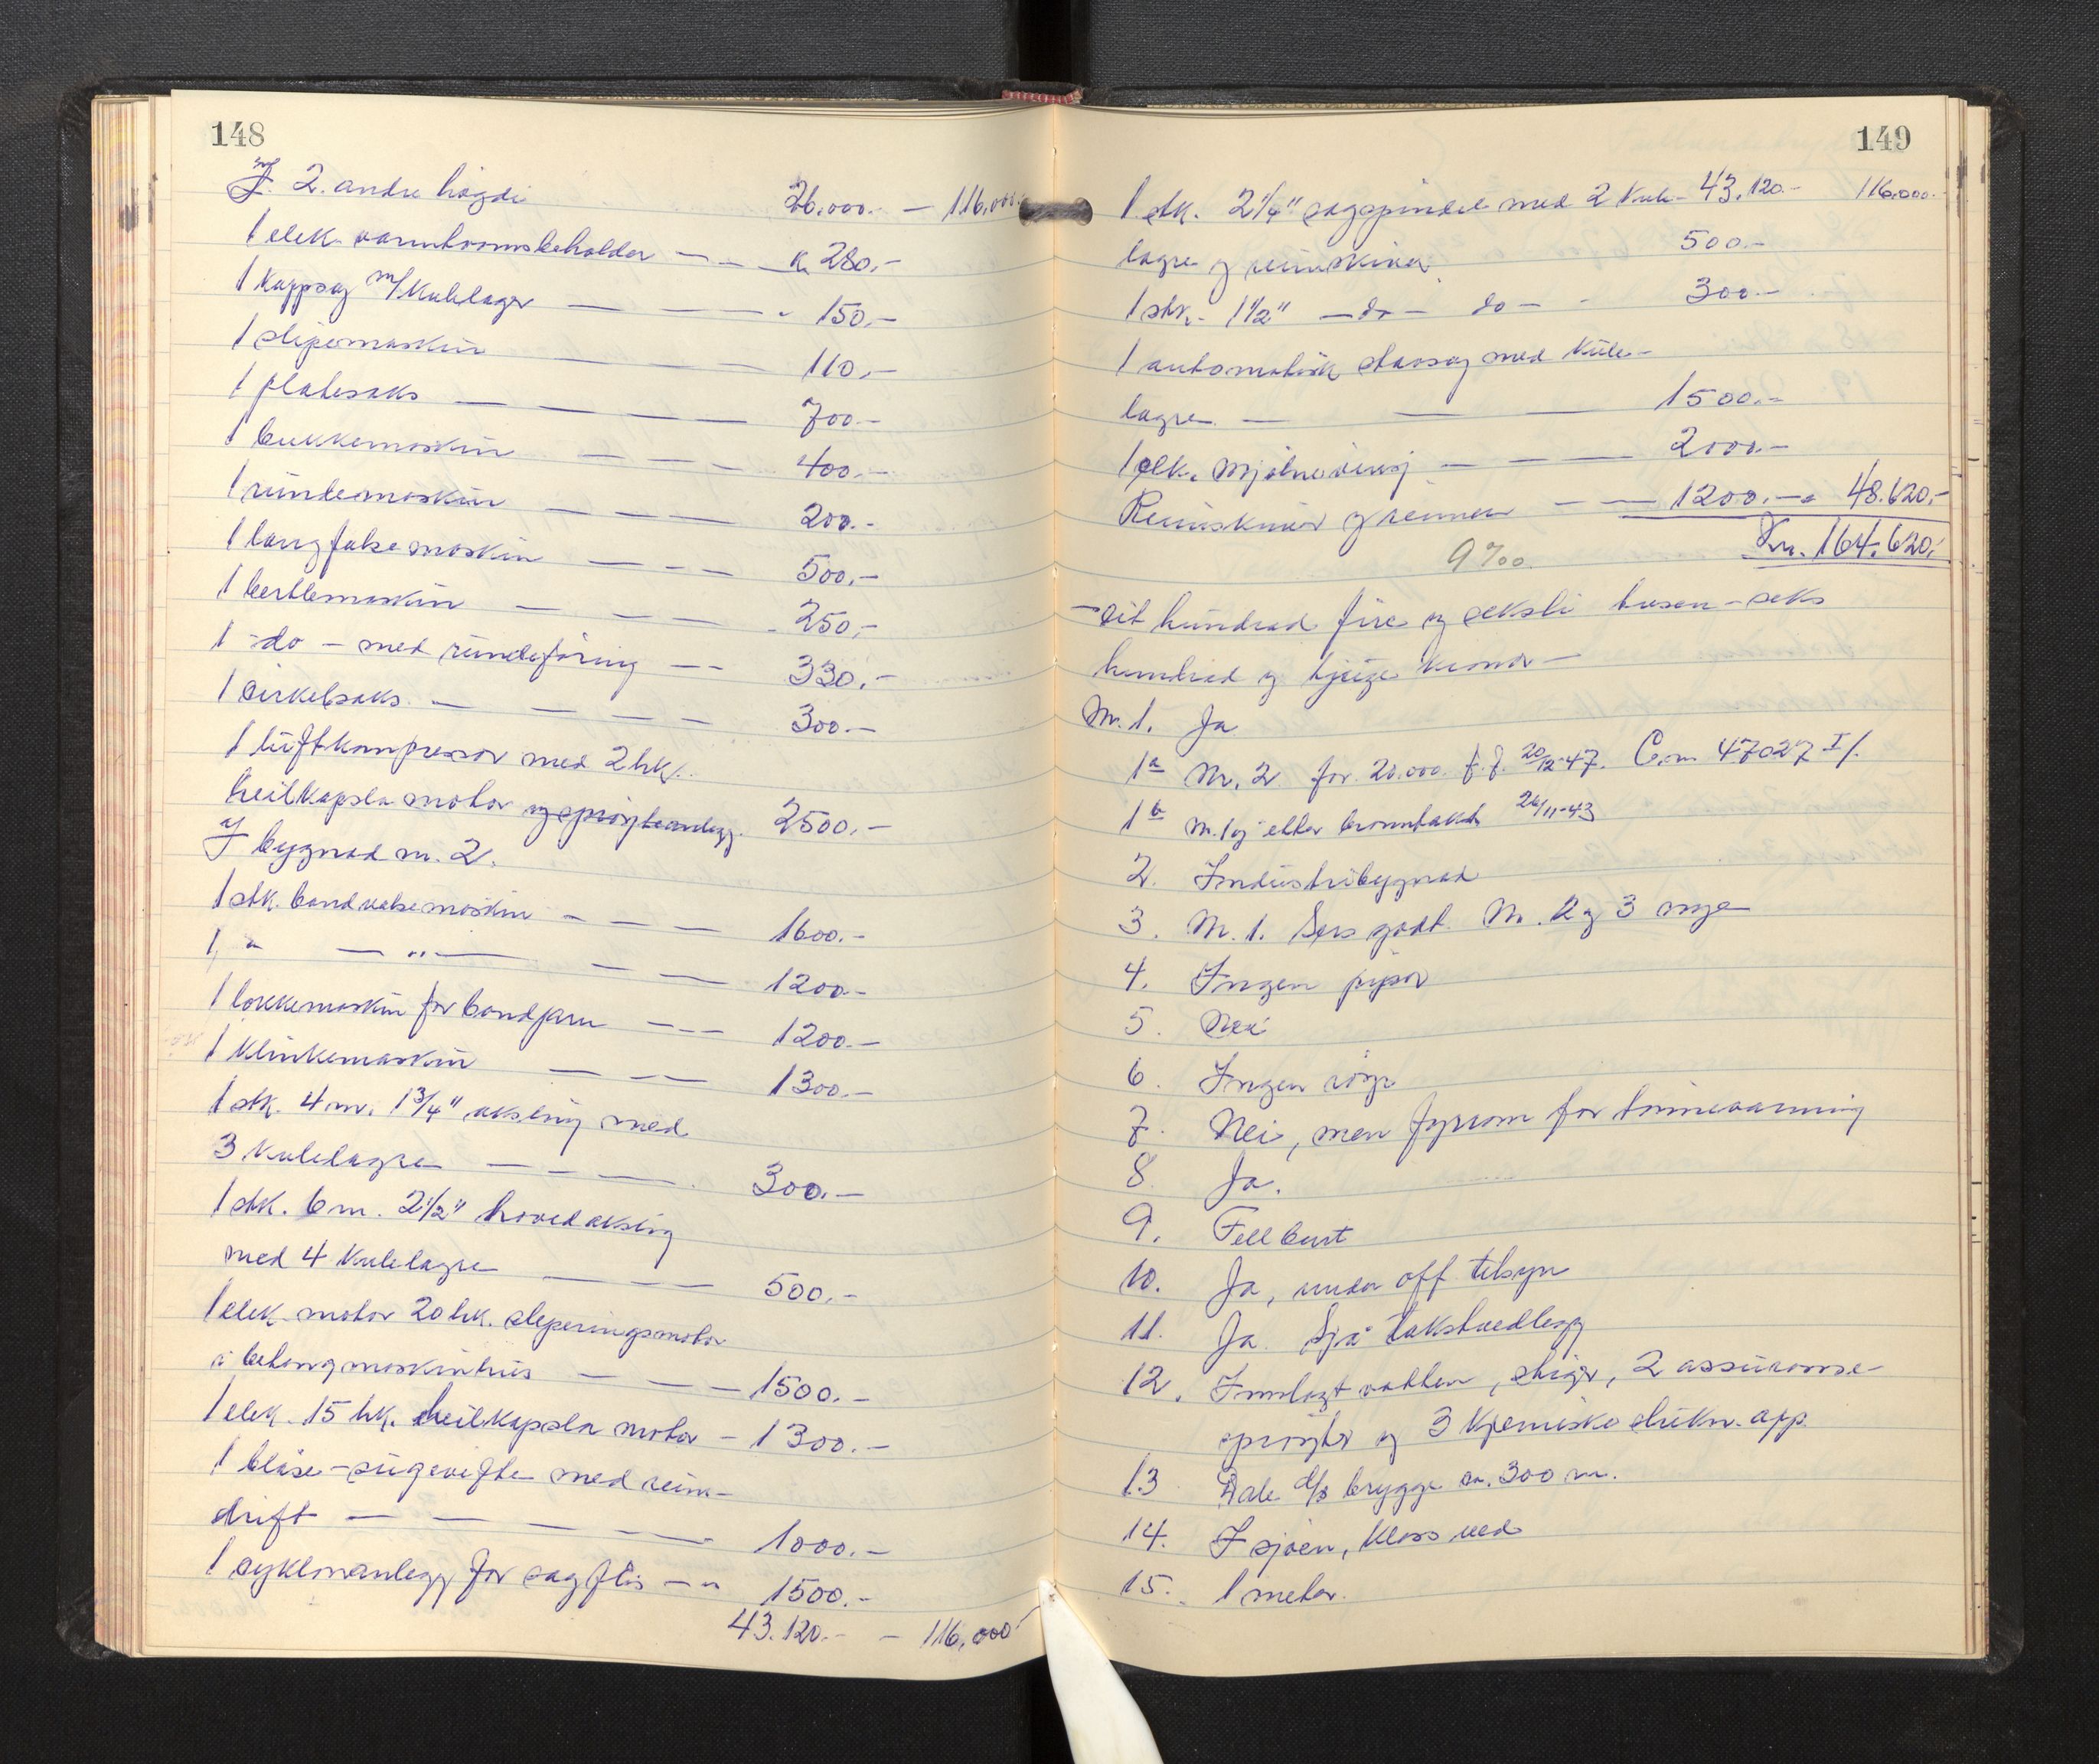 148
I 2. andre högdi 26.000.- - 116.000.-
1 elek. varmtvannsbeholder - - - kr. 280.-
1 kappsag m/kulelager - - - " 150.-
1 slipemaskin - - - 110.-
1 platesaks - - - - 700.-
1 bukkemaskin - - - 400.-
1 rundemaskin - - - 200.-
1 langfalsemaskin - - - 500.-
1 bertlemaskin - - - 250.-
1 -do- med rundeföring - - 330.-
1 sirkelsaks. - - - - 300.-
1 luftkompressor med 2 hk.
heilkapsla motor og spröyteanlegg. 2500.-
I bygnad nr. 2.
1 stk. bandvalsemaskin - - - 1600.-
1 " - " - - - 1200.-
1 lokkemaskin for bandjarn - - - 1200.-
1 klinkemaskin - - - 1300.-
1 stk. 4 m. 1 3/4" aksling med
3 kulelagre - - - - 300.-
1 stk. 6 m. 2 1/2" hovedaksling
med 4 kulelagre - - - 500.-
1 elek. motor 20 hk. sleperingsmotor
i betongmaskinhus - - - 1500.-
1 elek. 15 hk. heilkapsla motor - 1300.-
1 blåse-sugevifte med reim-
drift - - - - - 1000.-
1 syklonanlegg for sagflis - " 1500.-
43.120.- - 116.000.-
149
1 stk. 2 1/4" sagspindel med 2 kule- 43.120.- 116.000.-
lagre og reimskiver. 500.-
1 stk. 1 1/2" -do- do- - 300.-
1 automatisk stavsag med kule-
lagre. - - - 1500.-
1 elk. Mjølnerving - - - 2000.-
Reimskiver og reimer - - 1200.- - 48.620.-
9 ‰ Kr. 164.620.-
- eit hundrad fire og seksti tusen - seks
hundrad og tjuge kronor -
Nr. 1. Ja
1a Nr. 2 for 20.000 f.f. 20/12-47. C.nr. 47027 I/.
1b nr. 1 og etter branntakst 26/11-43
2. Industribygnad
3. Nr. 1. Sers godt. Nr. 2 og 3 nye
4. Ingen pipor
5. Nei
6. Ingen röyr
7. Nei, men fyrrom for tönnevarming
8. Ja.
9. Fellbert
10. Ja, under off. tilsyn
11. Ja. Sjå takstvedlegg
12. Innlagt vatten, stigar, 2 assuranse-
spröyter og 3 kjemiske slukn. app.
13 Dale d/s brygge ca. 300 m.
14. I sjøen, kloss ved
15. 1 meter.